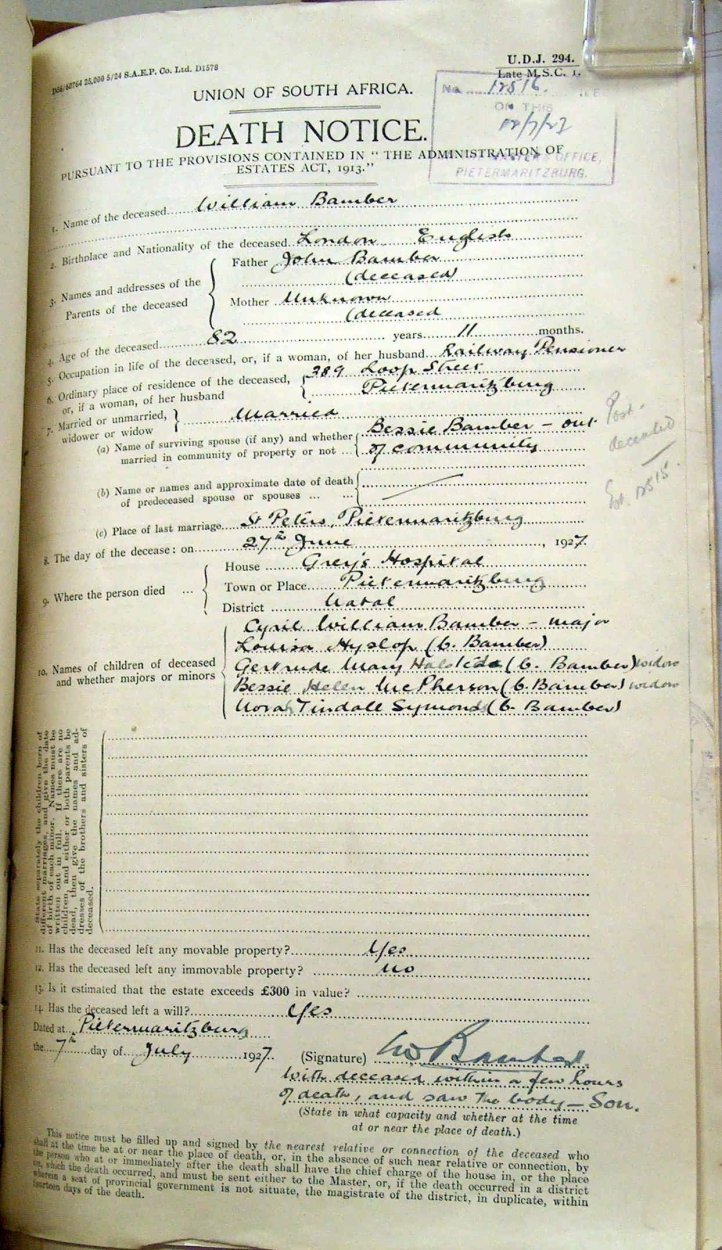 D54/60764 25,000 5/24 S.A.E.P. Co. Ltd. D1578
U.D.J. 294.
Late M.S.C. 1.
No. 12516.
ON THIS
12/7/27
OFFICE,
PIETERMARITZBURG.
UNION OF SOUTH AFRICA.
DEATH NOTICE.
PURSUANT TO THE PROVISIONS CONTAINED IN "THE ADMINISTRATION OF
ESTATES ACT, 1913."
1. Name of the deceased William Bamber
2. Birthplace and Nationality of the deceased London English
3. Names and addresses of the Parents of the deceased
Father John Bamber
(deceased)
Mother Unknown
(deceased
4. Age of the deceased 82 years 11 months.
5. Occupation in life of the deceased, or, if a woman, of her husband Railway Pensioner
6. Ordinary place of residence of the deceased, 389 Loop Street
or, if a woman, of her husband Pietermaritzburg
7. Married or unmarried, widower or widow Married
(a) Name of surviving spouse (if any) and whether Bessie Bamber - out
married in community of property or not ... of community
Post-
deceased
Est. 12515.
(b) Name or names and approximate date of death
of predeceased spouse or spouses ... ...
(c) Place of last marriage St Peters, Pietermaritzburg
8. The day of the decease: on 27th June, 1927
9. Where the person died ...
House Grey's Hospital
Town or Place Pietermaritzburg
District Natal
10. Names of children of deceased
and whether majors or minors
Cyril William Bamber - major
Louisa Hyslop (b. Bamber)
Gertrude Mary (b. Bamber) widow
Bessie Helen McPherson (b. Bamber) widow
Norah Tindall Symonds (b. Bamber)
State separately the children born of
different marriages, and give the date
of birth of each minor. Names must be
written out in full. If there are no
children, and either or both parents be
dead, then give the names and ad-
dresses of the brothers and sisters of
deceased.
11. Has the deceased left any movable property? Yes
12. Has the deceased left any immovable property? No
13. Is it estimated that the estate exceeds £300 in value?
14. Has the deceased left a will? Yes
Dated at Pietermaritzburg
the 7th day of July 1927.
(Signature) W Bamber
With deceased within a few hours
of death, and saw the body - Son.
(State in what capacity and whether at the time
at or near the place of death.)
This notice must be filled up and signed by the nearest relative or connection of the deceased who
shall at the time be at or near the place of death, or, in the absence of such near relative or connection, by
the person who at or immediately after the death shall have the chief charge of the house in, or the place
on, which the death occurred, and must be sent either to the Master, or, if the death occurred in a district
wherein a seat of provincial government is not situate, the magistrate of the district, in duplicate, within
fourteen days of the death.